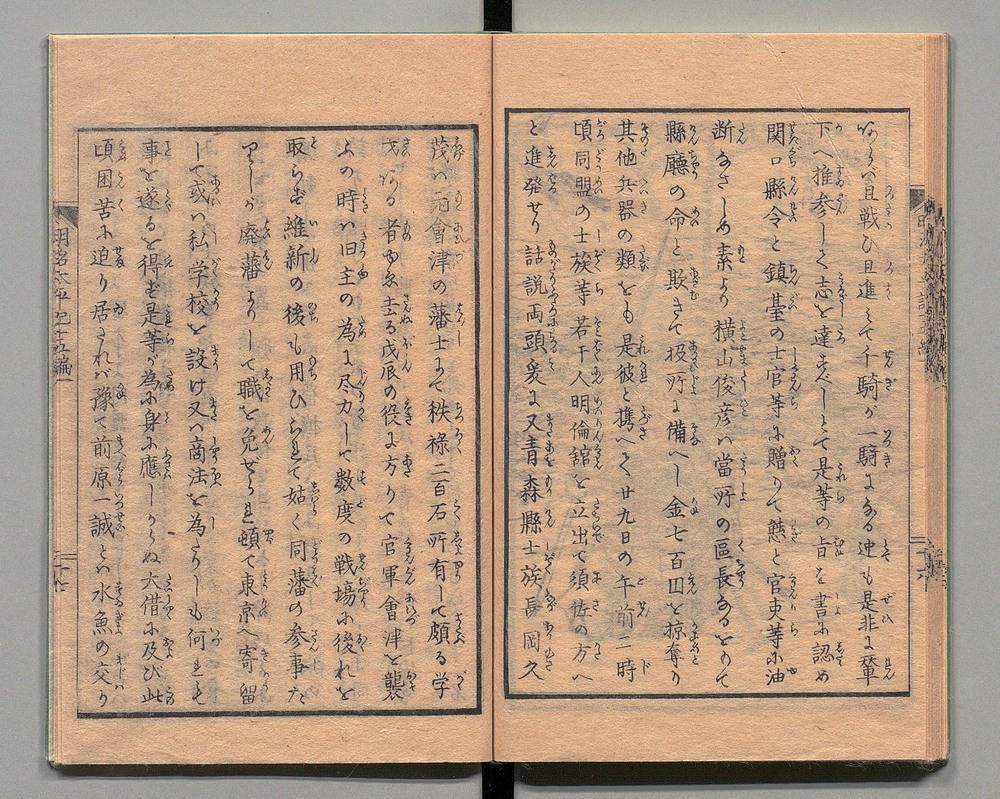 ながら且戦ひ且進みて千騎が一騎になる迚も是非に輦
下へ推参して志を達すべしとて是等の旨を書に認め
関口縣令と鎮臺の士官等に贈りて態と官吏等に油
断なさしめ素より横山俊彦ハ當所の區長なるをもて
縣廳の命と欺きて扱所に備へし金七百円を掠奪り
其他兵器の類をも是彼と携へて廿九日の午前二時
頃同盟の士族等若干人明倫舘を立出て須佐の方へ
と進発せり話説両頭爰に又青森縣士族長岡久
茂ハ元會津の藩士にて秩禄二百石所有して頗る学
才ある者ゆゑ去る戊辰の役に方りて官軍會津を襲
ふの時ハ旧主の為に尽力して数度の戦場に後れを
取らず維新の後も用ひられて姑く同藩の参事た
りしが廃藩よりして職を免ぜられ頓て東京へ寄留
して或ハ私学校を設け又ハ商法を為さりしも何れも
事を遂るを得ず是等が為に身に應じからぬ大借に及び此
頃困苦に迫り居されバ豫て前原一誠とハ水魚の交り
明治太平記十五編一